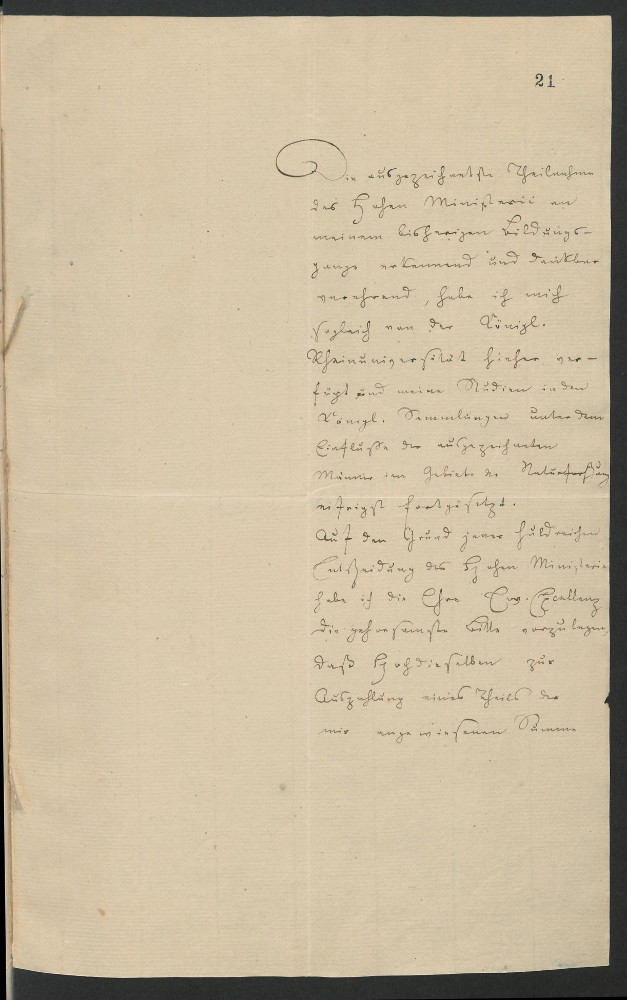 21
Die ausgezeichnetste Theilnahme
des Hohen Ministerii an
meinem bisherigen Bildungs-
gange erkennend und dankbar
verehrend, habe ich mich
sogleich von der Königl.
Rheinuniversität hieher ver-
fügt und meine Studien in den
Königl. Sammlungen unter dem
Einflusse der ausgezeichneten
Männer im Gebiete der Naturforschung
eifrigst fortgesetzt.
Auf den Grund jener huldreichen
Entscheidung des Hohen Ministerii
habe ich die Ehre Ew. Excellenz
die gehorsamste Bitte vorzulegen,
daß Hochdieselben zur
Auszahlung eines Theils der
mir angewiesenen Summe